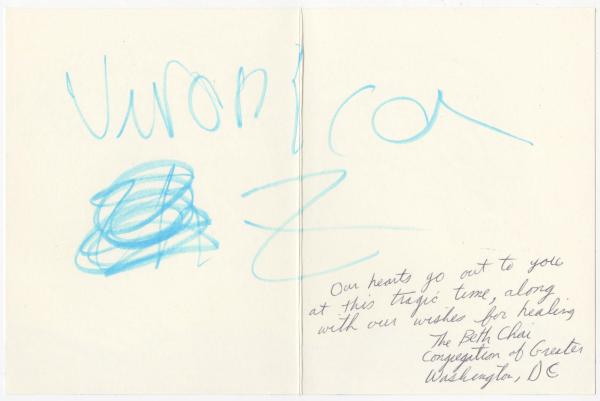 Veronica
Z
Our hearts go out to you
at this tragic time, along
with our wishes for healing
The Beth Chai
Congregation of Greater
Washington, DC